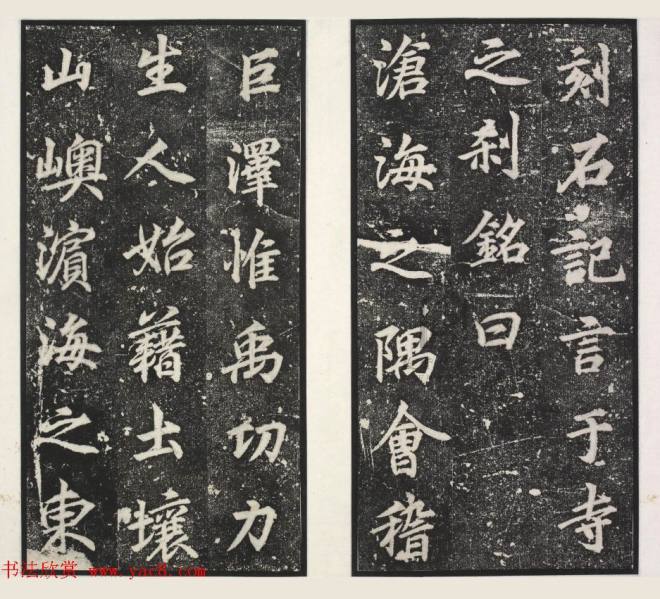 刻石記言于寺
之刹銘曰
滄海之隅會稽
巨澤惟禹切力
生人始藉土壤
山嶴濵海之東
书法欣赏 www.yac8.com